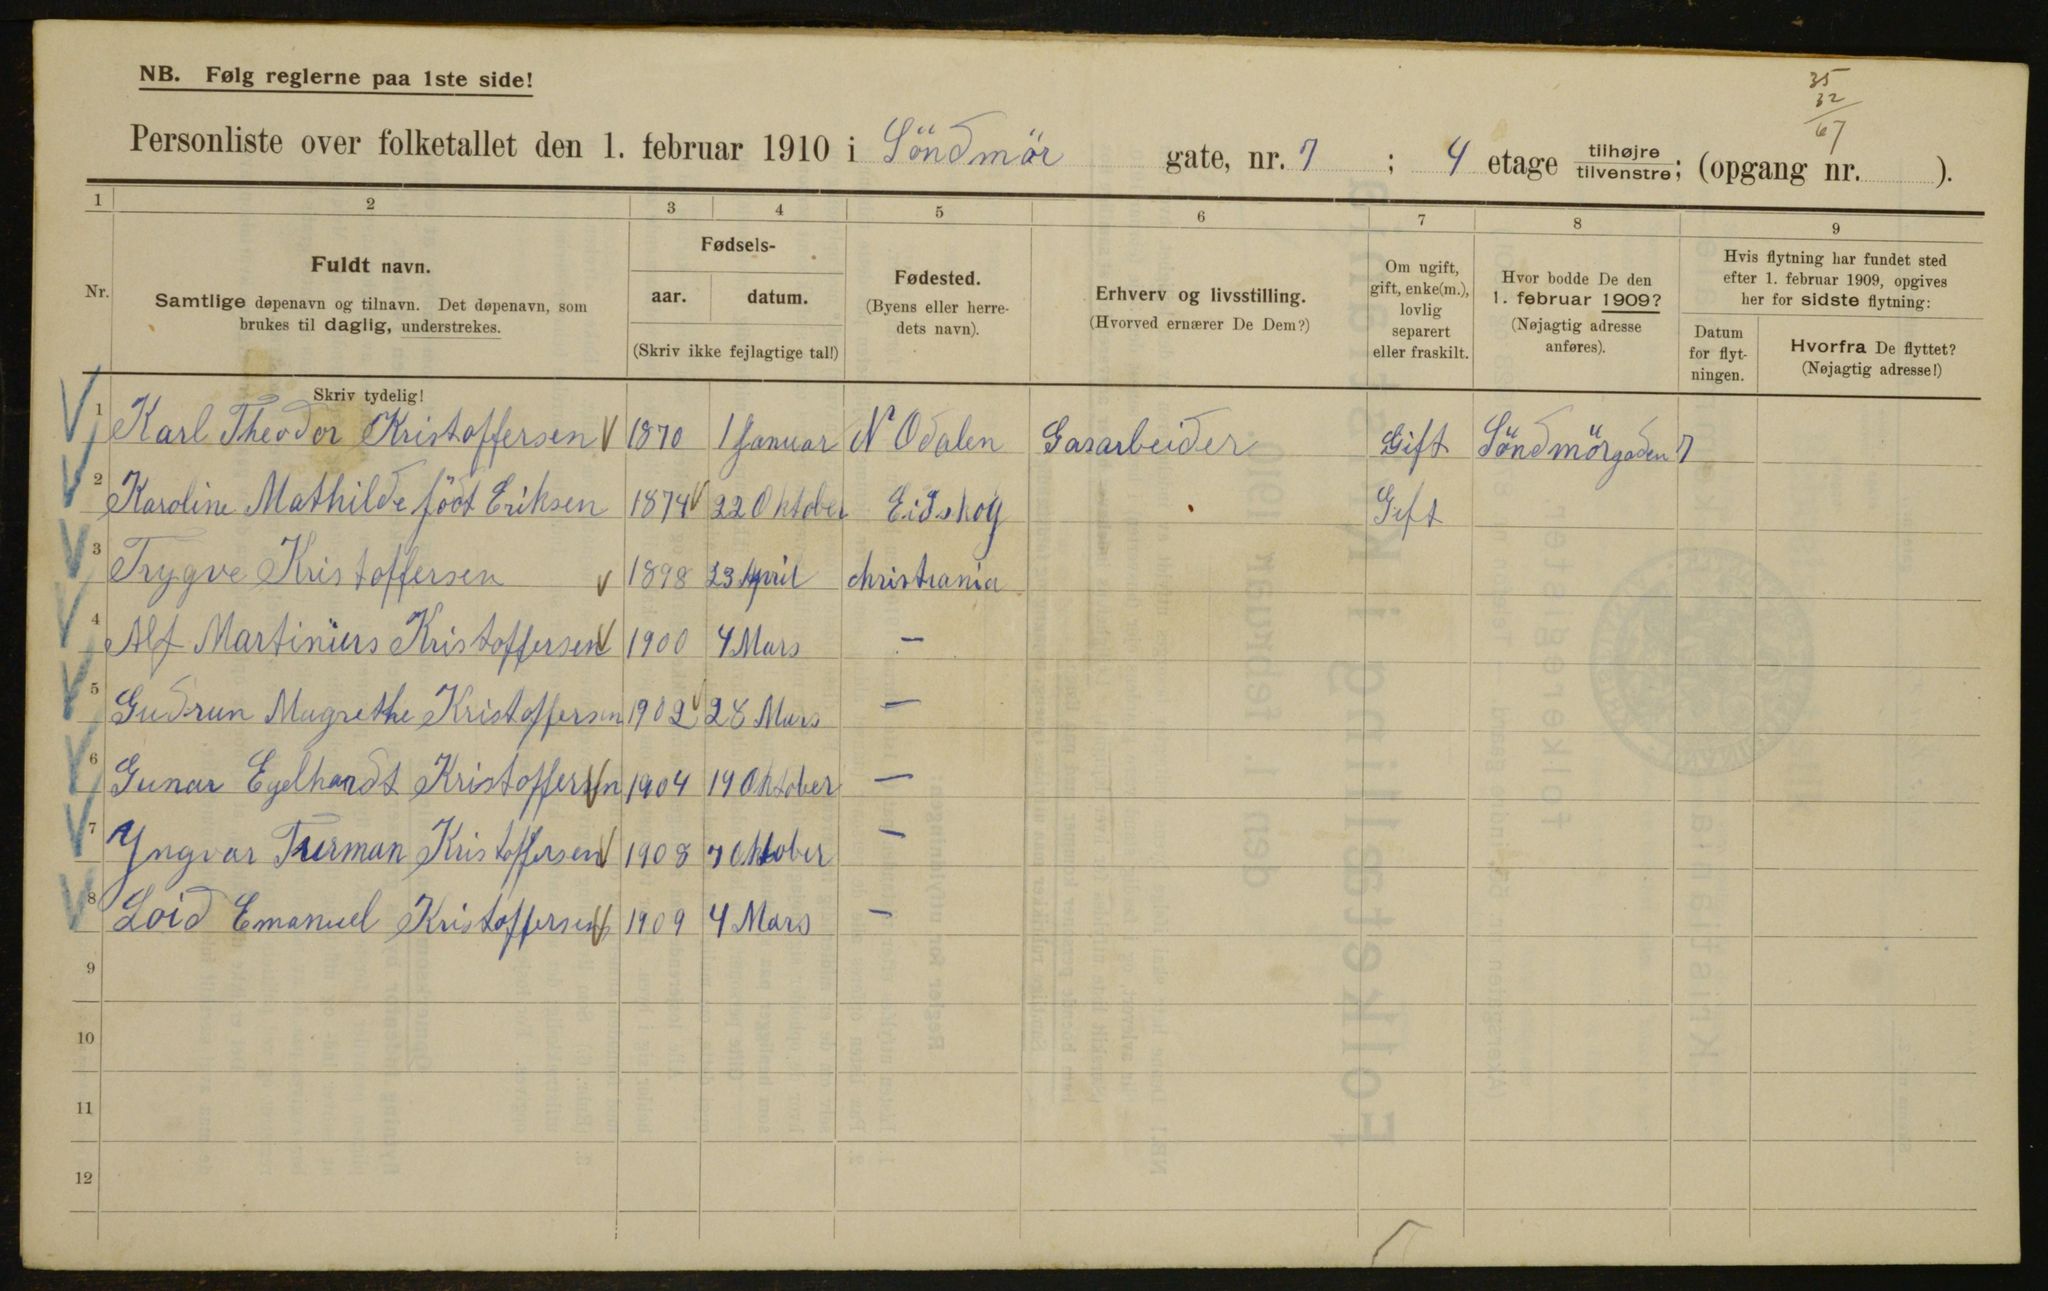 35
32
67
NB. Følg reglerne paa 1ste side!
Personliste over folketallet den 1. februar 1910 i Söndmör gate, nr. 7 ; 4 etage tilhøjre tilvenstre; (opgang nr. ).
1 2 3 4 5 6 7 8 9
Nr.
Fuldt navn.
Samtlige døpenavn og tilnavn. Det døpenavn, som
brukes til daglig, understrekes.
Fødsels-
aar. datum.
(Skriv ikke fejlagtige tal!)
Fødested.
(Byens eller herre-
dets navn).
Erhverv og livsstilling.
(Hvorved ernærer De Dem?)
Om ugift,
gift, enke(m.),
lovlig
separert
eller fraskilt.
Hvor bodde De den
1. februar 1909?
(Nøjagtig adresse
anføres).
Hvis flytning har fundet sted
efter 1. februar 1909, opgives
her for sidste flytning:
Datum
for flyt-
ningen.
Hvorfra De flyttet?
(Nøjagtig adresse!)
Skriv tydelig!
1 Karl Theodor Kristoffersen 1870 1 Januar N Odalen Gasarbeider Gift Söndmörgaden 7
2 Karoline Mathilde födt Eriksen 1874 22 Oktober Eidskog Gift
3 Trygve Kristoffersen 1898 23 April christiania
4 Alf Martinius Kristoffersen 1900 4 Mars —
5 Gudrun Magrethe Kristoffersen 1902 28 Mars —
6 Gunar Egelhardt Kristoffersen 1904 19 Oktober —
7 Yngvar Kristoffersen 1908 7 Oktober —
8 Loid Emanuel Kristoffersen 1909 4 Mars —
9
10
11
12